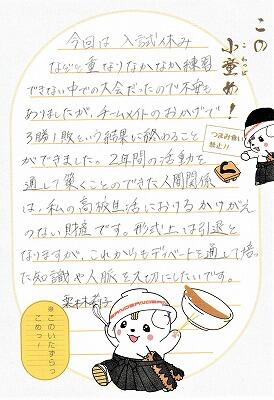 この
小童め!
こわっぱ
今回は 入試休み
などと重なりなかなか練習
できない中での大会だったので不安も
ありましたが、チームメイトのおかげで
3勝1敗という結果に終わること
ができました。2年間の活動を
通して築くことのできた人間関係
は、私の高校生活におけるかけがえ
のない財産です。形式上は引退と
なりますが、これからもディベートを通して培っ
た知識や人脈を大切にしたいです。
つまみ食い
禁止!!
※このいたずらっ
こめっ!